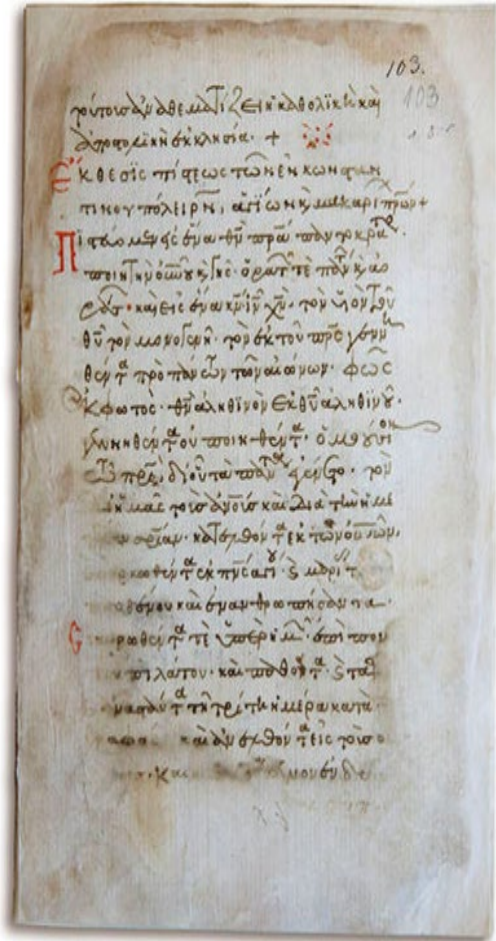 103.
103
τούτους ἀναθεματίζει ἡ καθολικὴ καὶ
ἀποστολικὴ ἐκκλησία. +
Ἔκθεσις πίστεως τῶν ἐν Κωνσταν
τινουπόλει ρν, ἁγίων κ μακαρι πρων +
Πιστεύομεν εἰς ἕνα θν πρα παντοκρα
ποιητὴν οὐνου κ γῆς. ὁρατ τε πάντ κ ἀο
ράτ. καὶ εἰς ἕνα κν ιν χν. τὸν υἱὸν τοῦ
θυ τὸν μονογενῆ. τὸν ἐκ του πρς γενν
θέντα πρὸ πάντων τῶν αἰώνων. φῶς
ἐκ φωτός. θν ἀληθινὸν ἐκ θυ ἀληθινοῦ.
γεννηθέντα οὐ ποιηθέντα. ὁμοούσιον
τῷ πρι, δι οὗ τὰ πάντα ἐγένετο. τὸν
ἡμᾶς τοὺς ανους καὶ διὰ τὴν ἡμε
σριαν. κατελθόντα ἐκ τῶν ουνων,
σαρκωθέντα ἐκ πνς αγι κ μαρι τ
παρθένου καὶ ἐνανθρωπήσαντα.
σταυρωθέντα τε ὑπὲρ ἡμ. ἐπὶ ποντ
πιλάτου. καὶ παθόντα. κ ταφ
ἀναστάντα τῇ τρίτῃ ἡμέρα κατὰ
καὶ ἀνελθόντα εἰς τοὺς ο